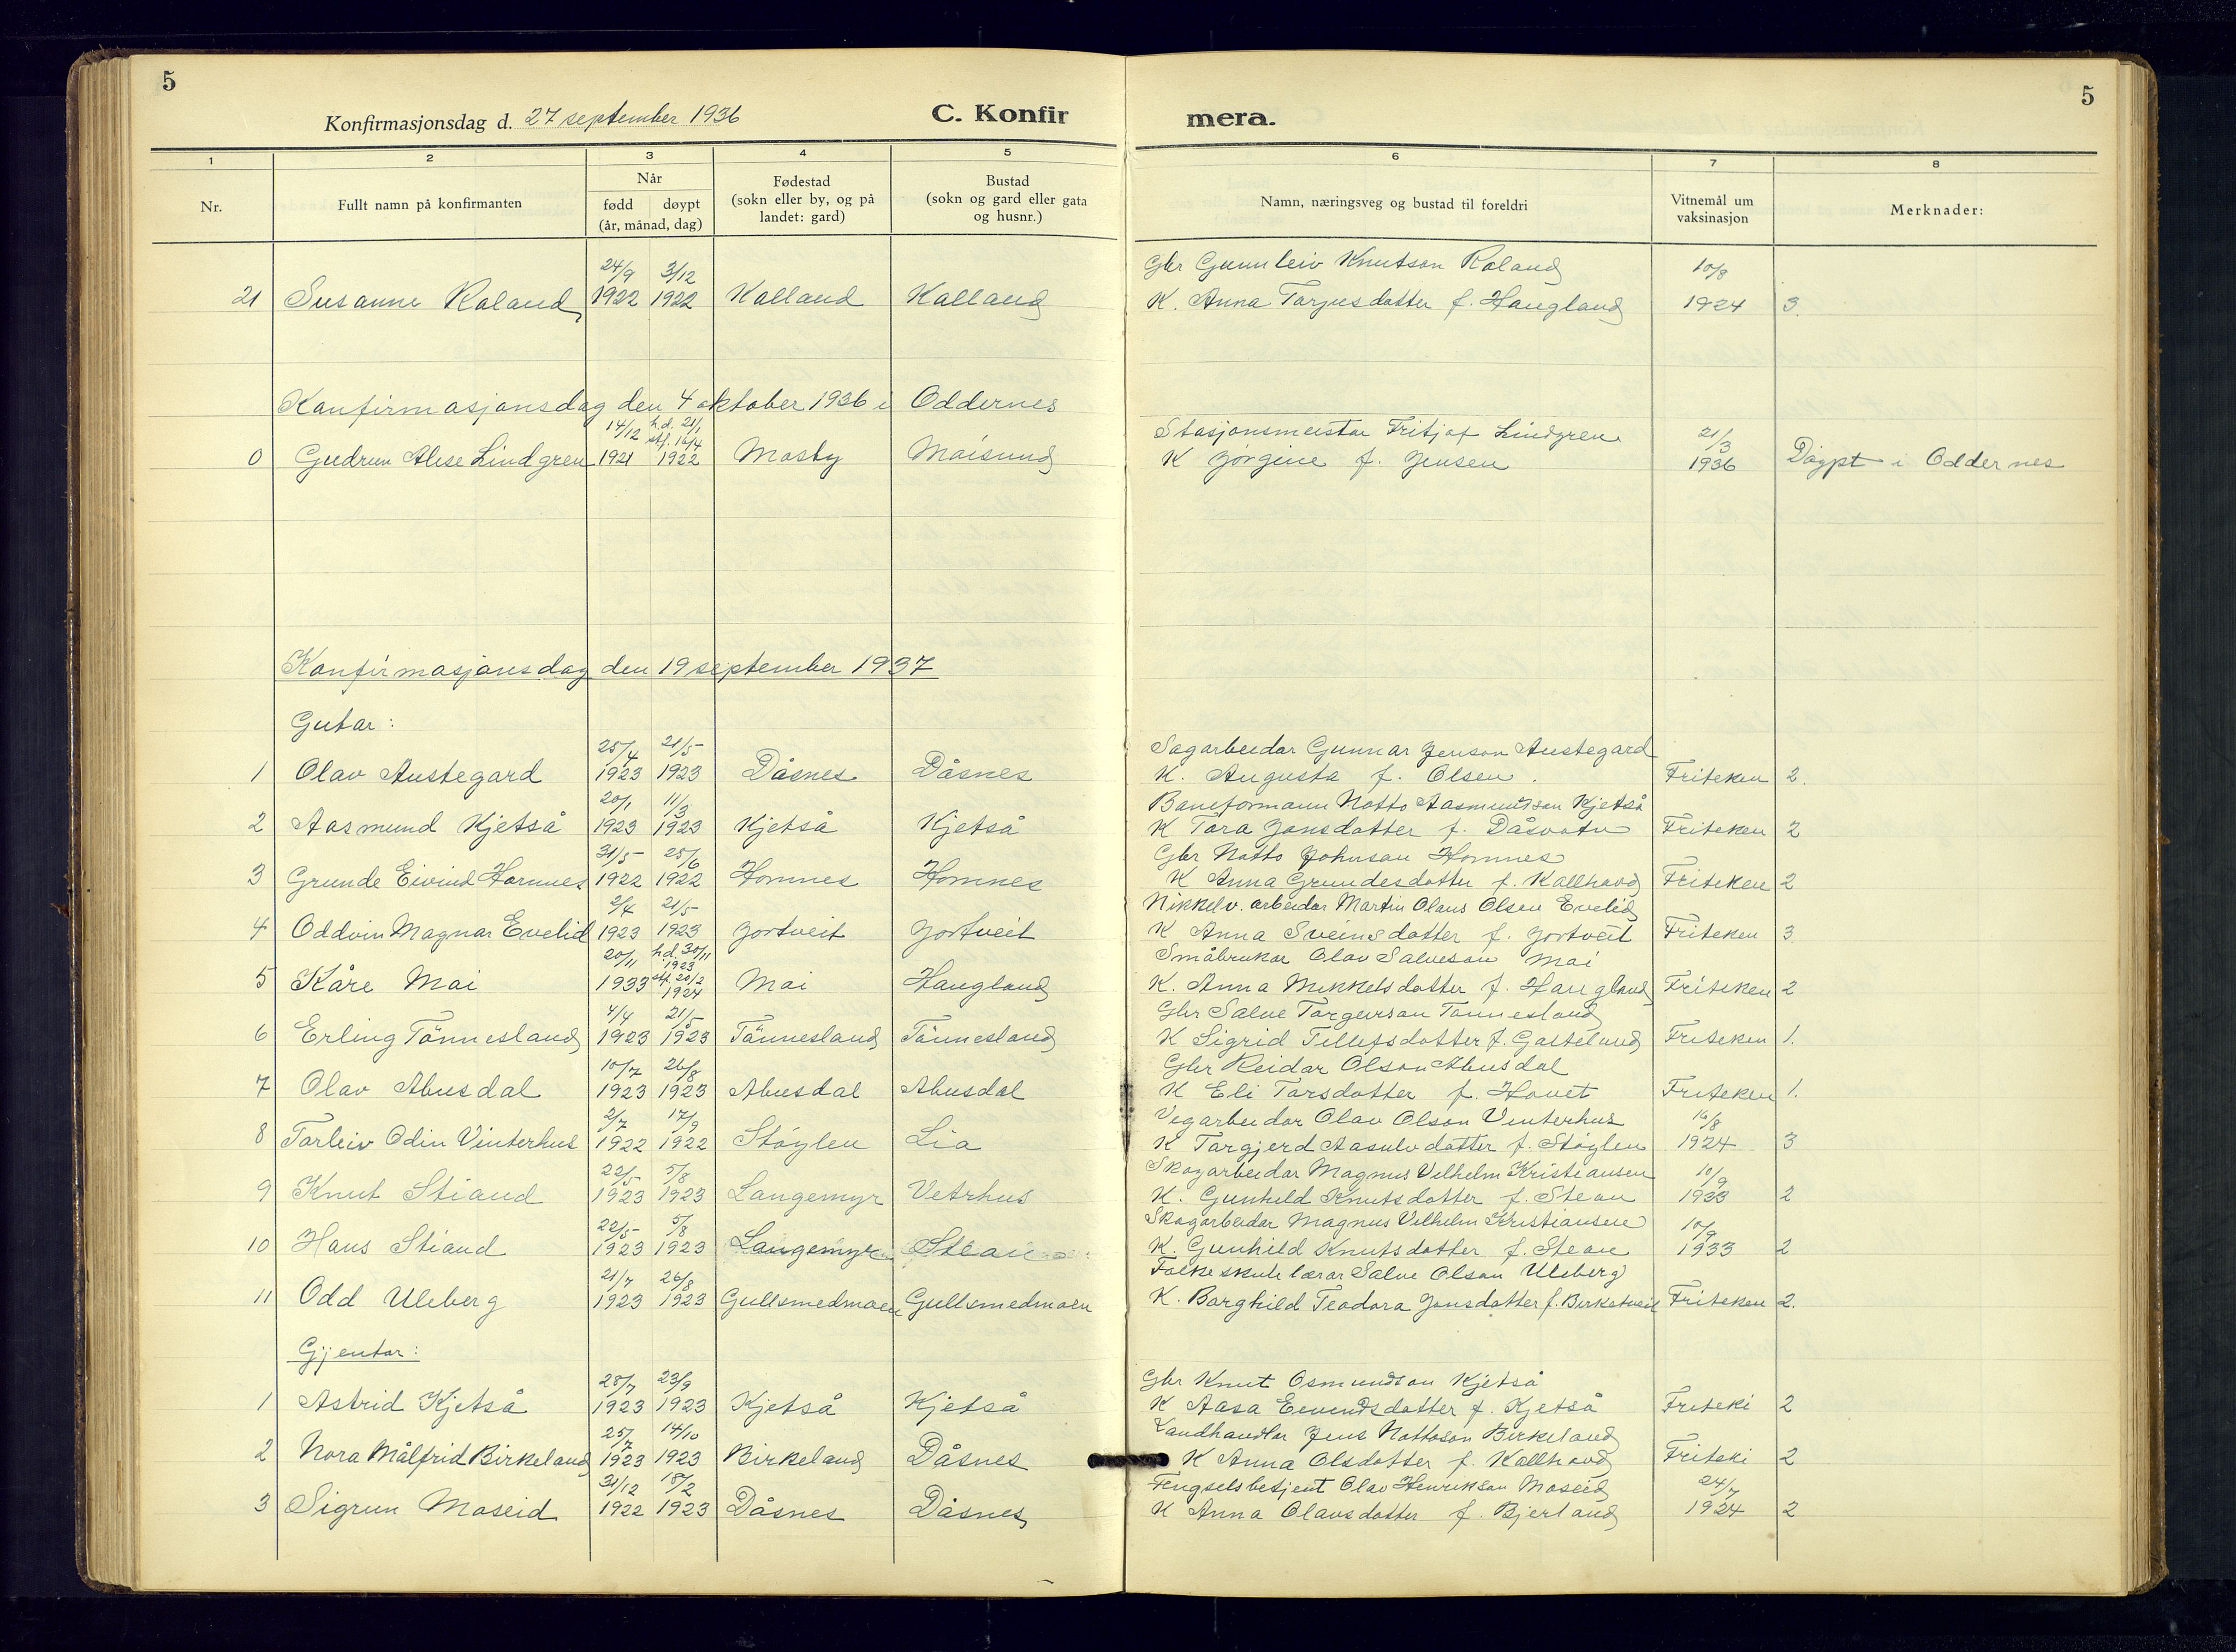 5
Konfirmasjonsdag d. 27 september 1936
C. Konfir
mera.
5
1 2 3 4 5 6 7 8
Nr.
Fullt namn på konfirmanten
Når
fødd døypt
(år, månad, dag)
Fødestad
(sokn eller by, og på
landet: gard)
Bustad
(sokn og gard eller gata
og husnr.)
Namn, næringsveg og bustad til foreldri
Vitnemål um
vaksinasjon
Merknader:
24/9 3/12 Gbr Gunnleiv Knutson Røland 10/8
21 Susanne Røland 1922 1922 Kalland Kalland K. Anna Tarjusdatter f. Haugland 1924 3.
Konfirmasjonsdag den 4 oktober 1936 i Oddernes
14/12 h.d. 21/1 stf. 16/4 Stasjonsmeistar Fritjof Lindgren 21/3
0 Gudrun Alise Lindgren 1921 1922 Mosby Moisund K Jörgine f. Jensen 1936 Döypt i Oddernes
Konfirmasjonsdag den 19 september 1937
Gutar:
25/4 21/5 Sagarbeidar Gunnar Jenson Austegard
1 Olav Austegard 1923 1923 Dåsnes Dåsnes K. Augusta f. Olsen. Friteken 2.
20/1 11/3 Baneformann Notto Aasmundson Kjetså
2 Aasmund Kjetså 1923 1923 Kjetså Kjetså K Tora Jonsdatter f. Dåsvatn Friteken 2
31/5 25/6 Gbr Notto Johnson Homnes
3 Grunde Eivind Homnes 1922 1922 Homnes Homnes K Anna Grundesdatter f. Kallhovd Friteken 2
2/4 21/5 Nikkelv. arbeidar Martin Olaus Olsen Evelid
4 Oddvin Magnar Evelid 1923 1923 Jortveit Jortveit K Anna Sveinsdatter f. Jortveit Friteken 3
20/11 h.d. 30/11 1923 Småbrukar Olav Salveson Moi
5 Kåre Moi 1933 stf. 20/2 1924 Moi Haugland K. Anna Mikkelsdatter f. Haugland Friteken 2
4/4 21/5 Gbr Salve Torgeirson Tönnesland
6 Erling Tönnesland 1923 1923 Tönnesland Tönnesland K Sigrid Tellefsdatter f. Gasteland Friteken 1.
10/7 26/8 Gbr Reidar Olson Abusdal
7 Olav Abusdal 1923 1923 Abusdal Abusdal K Eli Torsdatter f. Hovet Friteken 1.
2/7 17/9 Vegarbeidar Olav Olson Vinterhus 16/8
8 Torleiv Odin Vinterhus 1922 1922 Stöylen Lia K Torgjerd Aasulvdatter f. Stöylen 1924 3
22/5 5/8 Skogarbeidar Magnus Vilhelm Kristiansen 10/9
9 Knut Stiand 1923 1923 Langemyr Vetrhus K. Gunhild Knutsdatter f. Stean 1933 2
22/5 5/8 Skogarbeidar Magnus Vilhelm Kristiansen 10/9
10 Hans Stiand 1923 1923 Langemyr Stean K. Gunhild Knutsdatter f. Stean 1933 2
21/7 26/8 Folkeskulelærar Salve Olson Uleberg
11 Odd Uleberg 1923 1923 Gullsmedmoen Gullsmedmoen K. Borghild Teodora Jonsdatter f. Birketveit Friteken 2.
Gjentor:
28/7 23/9 Gbr Knut Osmundson Kjetså
1 Astrid Kjetså 1923 1923 Kjetså Kjetså K Aasa Eivindsdatter f. Kjetså Friteki 2
25/7 14/10 Landhandlar Jens Nottoson Birkeland
2 Nora Målfrid Birkeland 1923 1923 Birkeland Dåsnes K Anna Olsdatter f. Kallhovd Friteki 2
31/12 18/2 Fengselsbetjent Olav Henrikson Moseid 24/7
3 Sigrun Moseid 1922 1923 Dåsnes Dåsnes K Anna Olavsdatter f. Bjerland 1924 2